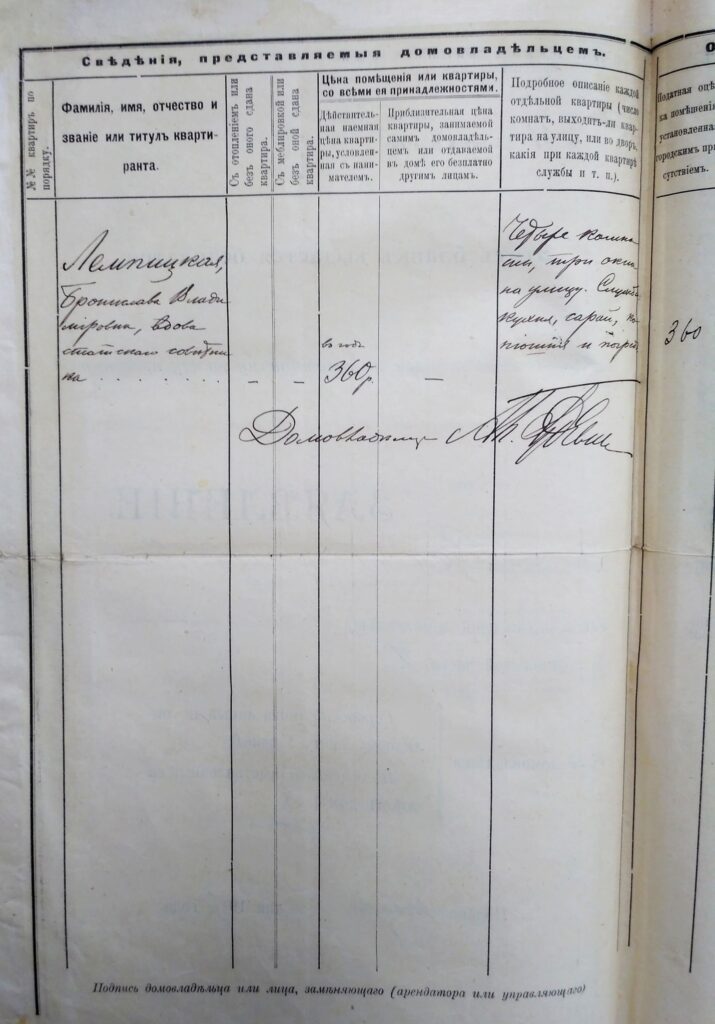 Свѣдѣнія, представляемыя домовладѣльцемъ.
№№ квартиръ по
порядку.
Фамилія, имя, отчество и
званіе или титулъ кварти-
ранта.
Съ отопленіемъ или
безъ оного сдана
квартира.
Съ меблировкой или
безъ оной сдана
квартира.
Цѣна помѣщенія или квартиры,
со всѣми ея принадлежностями.
Дѣйствитель-
ная наемная
цѣна кварти-
ры, условлен-
ная съ нани-
мателемъ.
Приблизительная цѣна
квартиры, занимаемой
самимъ домовладѣль-
цемъ или отдаваемой
въ домѣ его безплатно
другимъ лицамъ.
Подробное описаніе каждой
отдѣльной квартиры (число
комнатъ, выходитъ-ли квар-
тира на улицу, или во дворъ,
какія при каждой квартирѣ
службы и т. п.).
Податная оцѣ
ка помѣщені
установленна
городскимъ при
сутствіемъ.
Лемпицкая,
Бронислава Влади
міровна, вдова
статскаго совѣтни
ка . . . . . . . .
– –
въ годъ
360р.
–
Четыре комна
ты, три окна
на улицу. Службы
кухня, сарай, ко
нюшня и погреб
360
Домовладѣлец
Подпись домовладѣльца или лица, замѣняющаго (арендатора или управляющаго)